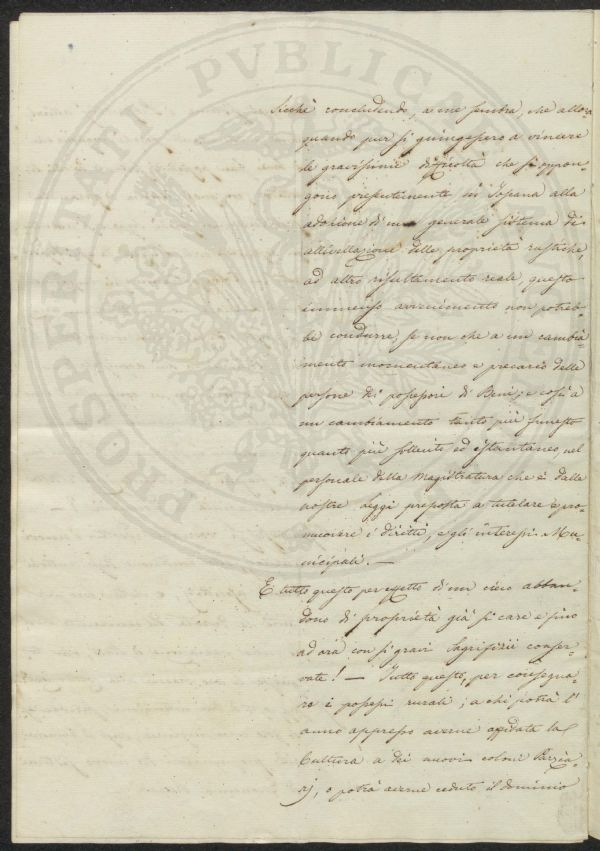 PROSPERITATI PVBLICAE
Sicchè concludendo, a me sembra, che allor¬
quando pur si giungessero a vincere
le gravissime difficoltà che si oppon¬
gono presentemente in Toscana alla
adozione di un generale sistema di
allivellazione delle proprietà rustiche,
ad altro risultamento reale, questo
immenso avvenimento non potreb¬
be condurre, se non che a un cambia¬
mento momentaneo e precario delle
persone dei possessori di Beni; e così a
un cambiamento tanto più funesto
quanto più sollecito ed istantaneo nel
personale della Magistratura che è dalle
nostre Leggi preposta a tutelare e pro¬
muovere i diritti, e gli interessi Mu¬
nicipali. —
E tutto questo per effetto di un cieco abban¬
dono di proprietà già sì care e fino
ad ora con sì gravi Sagrifizii conser¬
vate! — Tutto questo, per consegna¬
re i possessi rurali, a chi potrà l'
anno appresso averne affidata la
Cultura a dei nuovi coloni Parzia¬
rj, o potrà averne ceduto il dominio